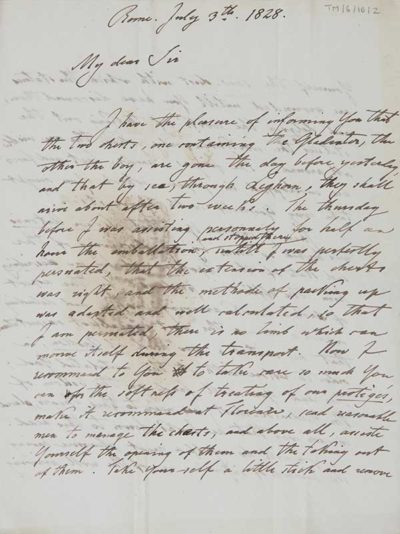 TM/6/10/2
Rome. July 3th. 1828.
My dear Sir
I have the pleasure of informing You that
the two chests, one containing the Gladiator, the
other the boy, are gone the day before yesterday
and that by sea, through Leghorn, they shall
arive about after two weeks. The thursday
before I was assisting personnaly for half an
and stopped there
hour the imballation, untill I was perfectly
persuated, that the extension of the chests
was right and the methode of packing up
was adapted and well calculated, so that
I am persuated, there is no limb which can
move itself during the transport. Now I
recommend to You to take care so much You
can for the softness of treating of our protégés,
make it recommend at Florence, send reasonable
men to manage the chests, and above all, assiste
Yourself the opening of them and the taking out
of them. Take Yourself a little stick and remove